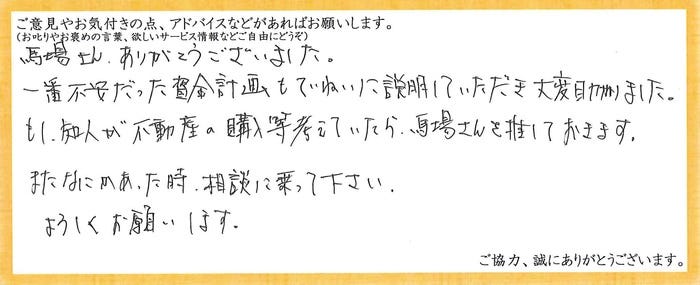 ご意見やお気付きの点、アドバイスなどがあればお願いします。
(お叱りやお褒めの言葉、欲しいサービス情報などご自由にどうぞ)
馬場さん、ありがとうございました。
一番不安だった資金計画もていねいに説明していただき大変助かりました。
もし、知人が不動産の購入等考えていたら、馬場さんを推しておきます。
またなにかあった時、相談に乗って下さい。
よろしくお願いします。
ご協力、誠にありがとうございます。